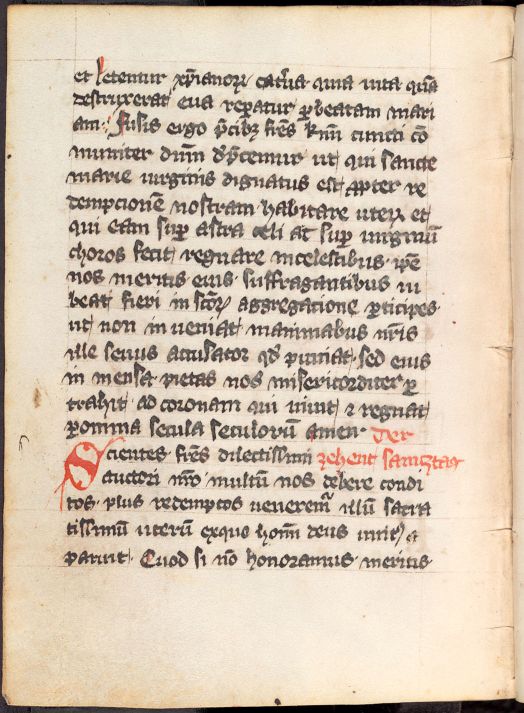 et letentur xp̄ianoꝝ cat̄ua quia uita quā
destruxerat eua reꝑatur ꝑ beatam mari
am. Fusis ergo p̄cibꝫ fr̄es k̄mi cuncti cō
muniter dn̄m dp̄cemur ut qui sancte
marie uirginis dignatus est ꝓpter re
dempcionē nostram habitare uterū et
qui eam suꝑ astra celi at suꝑ uirginū
choros fecit regnare in celestibus ip̄e
nos meritis eius suffragantibus iu
beat fieri in sc̄oꝝ aggregacione ꝑticipes
ut non in ueniat in animabus nr̄is
ille seuus accusator qd̓ puniat sed eius
in mensa pietas nos misericorditer ꝑ
trahit ad coronam qui uiuit ⁊ regnat
ꝑ omnia secula seculorū amen. Der
Scientes fr̄es dilectissimi zehent samztag
auctori nr̄o multū nos debere condi
tos plus redemptos uenerem̄ illū sacra
tissimū uterū ex quo ho͞mi deus uniť a
paruit. Quod si nō honoramus meritis